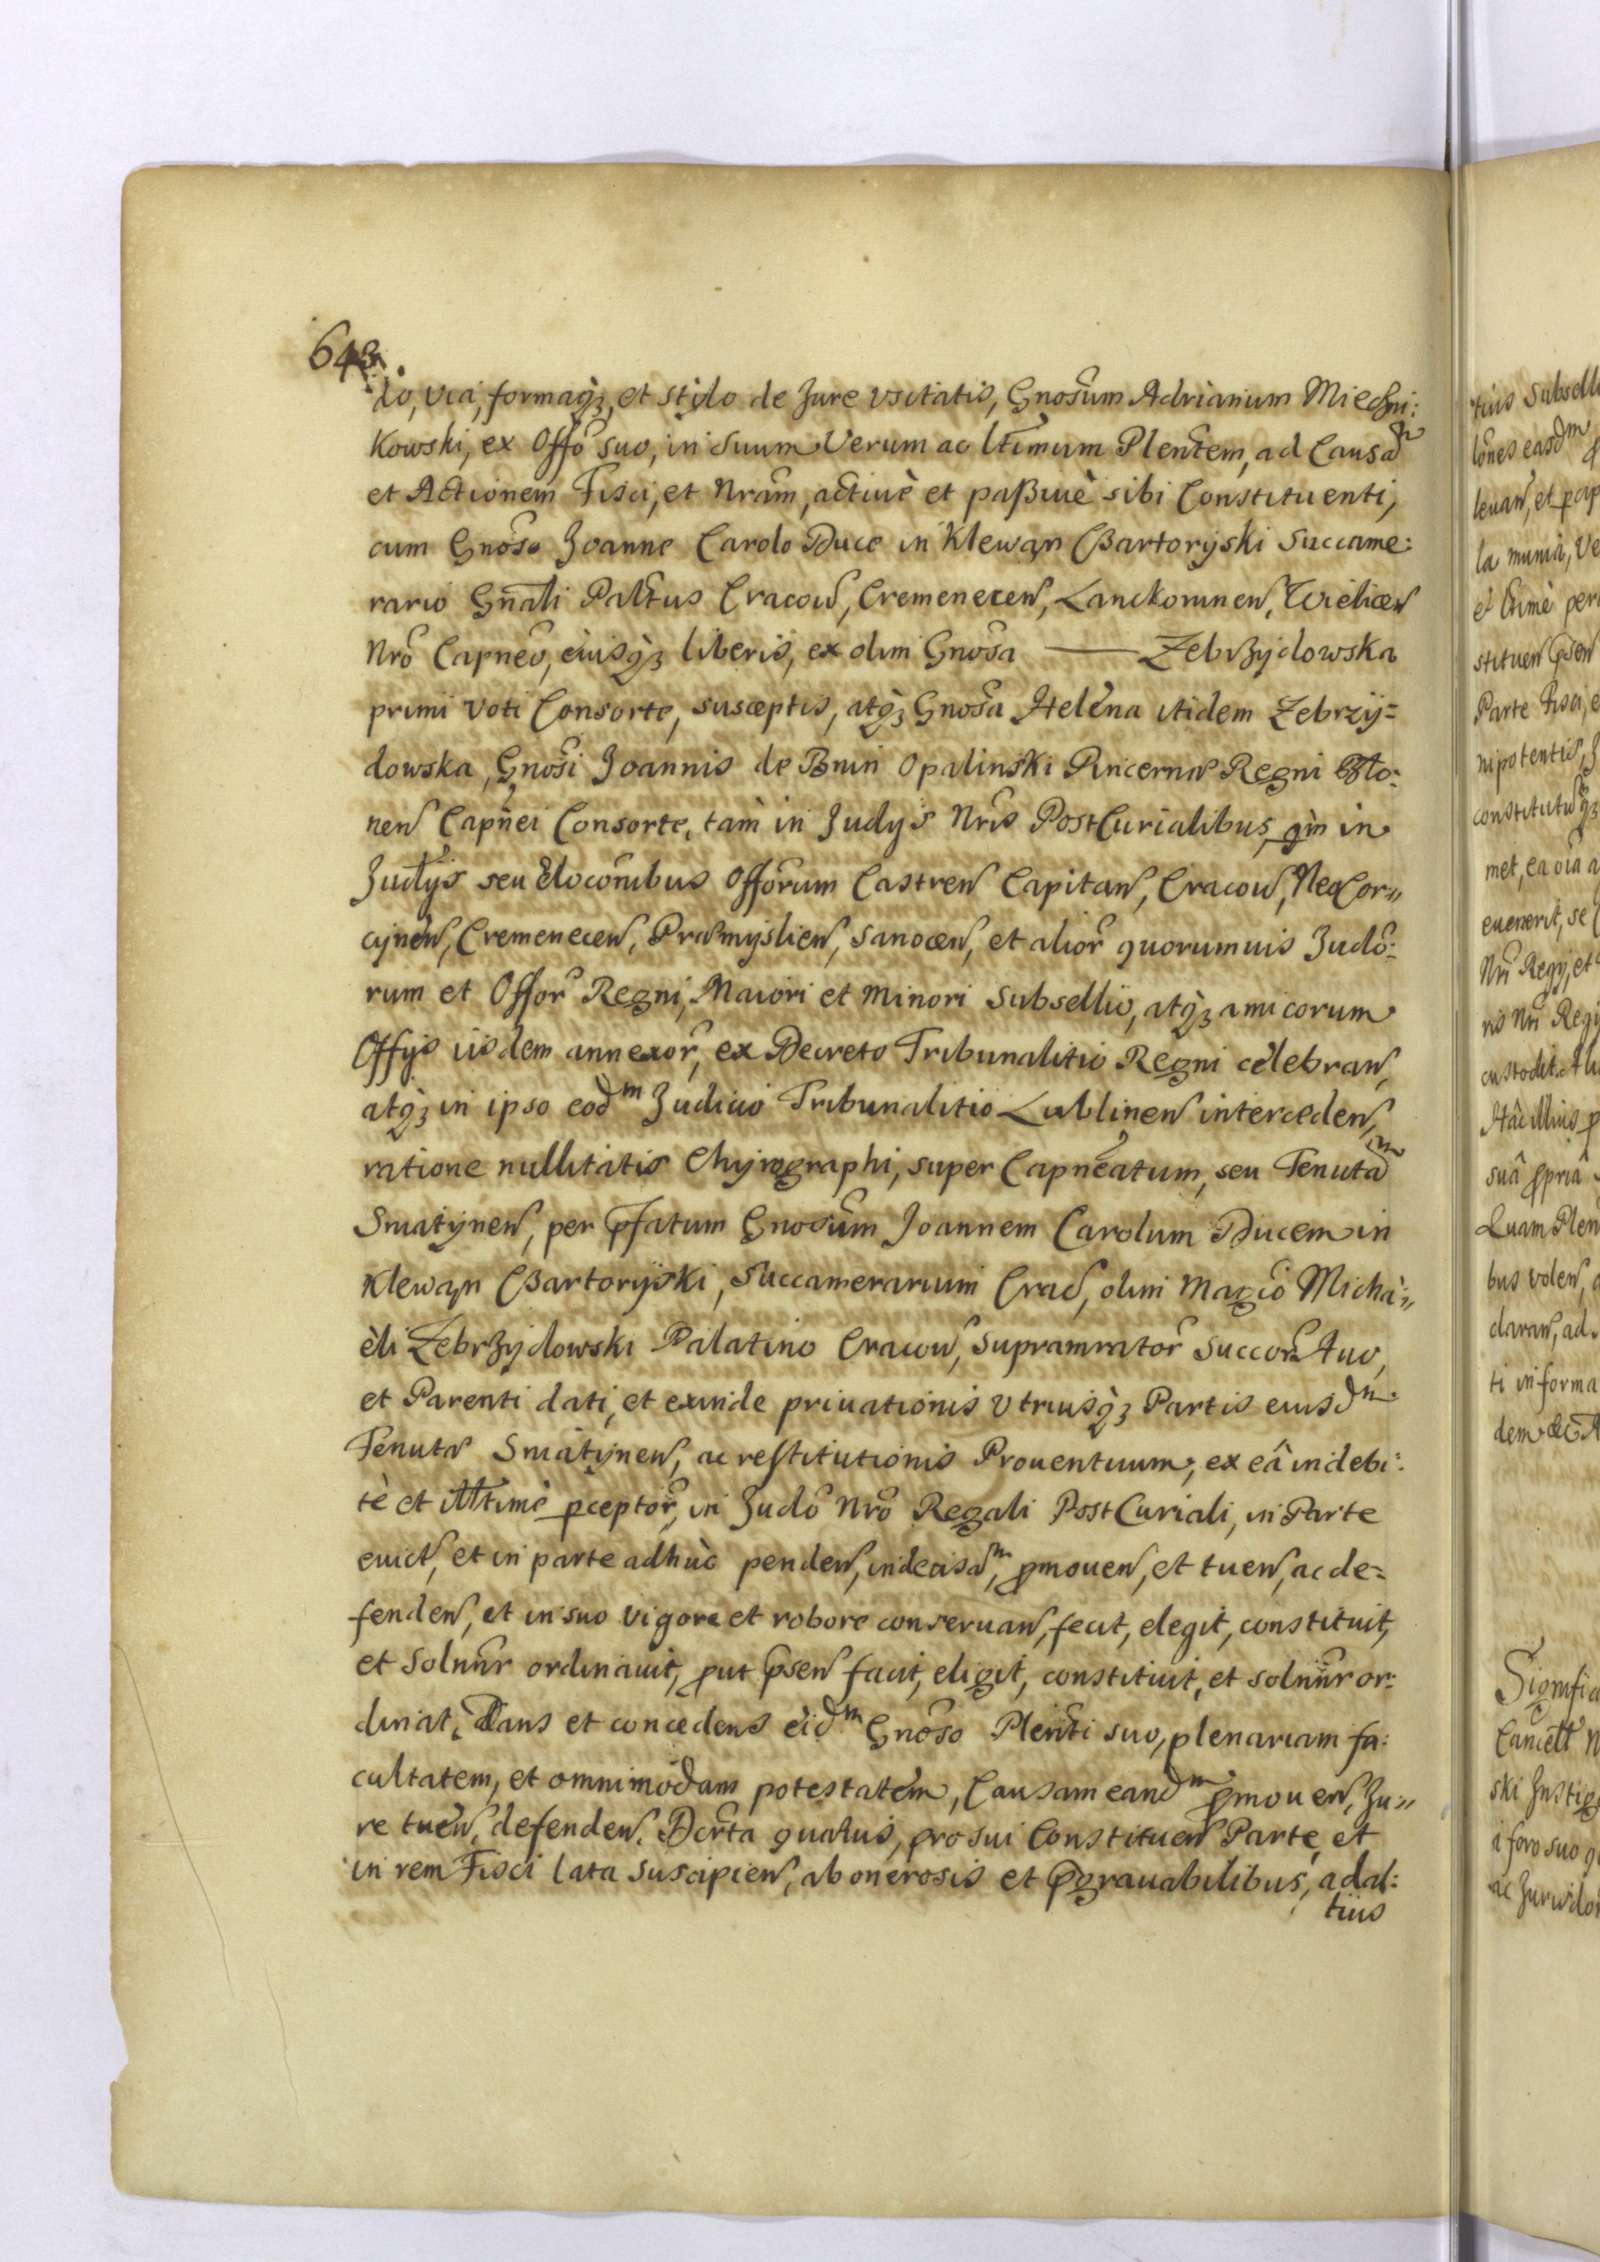 643.
do, via, formaq3, et stylo de Jure vsitatis, Gnosum Adrianum Miechni:
kowski, ex Offo suo, in suum Verum ac lttimum Plentem, ad Causam
et Actionem Fisci, et Nram, actiuè et paßiuè sibi Constituenti,
cum Gnoso Joanne Carolo Duce in Klewan Czartoryski Succame:
rario Gnali Paltus Cracou, Cremenecen, Lanckoronen, Wielicen
Nro Capneo, eiusq3 liberis, ex olim Gnosa —— Zebrzydowska
primi voti Consorte, susceptis, atq3 Gnosa Helena itidem Zebrzy=
dowska, Gnosi Joannis de Bnin Opalinski Pincernæ Regni
nen Capnei Consorte, tam in Judys Nris PostCurialibus, qm in
Judys seu Officorum Castren Capitan, Cracou, NeoCor=
cynen, Cremenecen, Præmyslien, Sanocen, et alior quorumuis Judo:
rum et Offor Regni, Maiori et Minori Subsellio, atq3 amicorum
Offys iisdem annexor, ex Decreto Tribunalitio Regni celebran,
atq3 in ipso eodm Judicio Tribunalitio Lublinen interceden,
ratione nullitatis Chyrographi, super Capneatum, seu Tenutam
Sniatynen, per pfatum Gnosum Joannem Carolum Ducem in
Klewan Czartoryski, Succamerarium Crac, olim Magco Micha=
èli Zebrzydowski Palatino Cracou, Supramrator Succor Auo,
et Parenti dati, et exinde priuationis vtriusq3 Partis eiusdm
Tenutæ Sniatynen, ac restitutionis Prouentuum, ex eâ indebi:
tè et illttimè pceptor, in Judo Nro Regali PostCuriali, in Parte
euict, et in parte adhùc penden, indecisam, pmouen, et tuen, ac de=
fenden, et in suo vigore et robore conseruan, fecit, elegit, constituit,
et Solnnr ordinauit, put psen facit, eligit, constituit, et solnnr or:
dinat. Dans et concedens eidm Gnoso Plenti suo, plenariam fa:
cultatem, et omnimodam potestatem, Causam eandm pmouen, Ju=
re tuen, defenden. Dcrta quatus, pro sui Constituen Parte, et
in rem Fisci lata suscipien, ab onerosis et pgrauabilibus, ad al:
tius
tius Subselli
lones easdm
leuan, et pcip
la munia, Ve
et ltime per
stituen psen
Parte Fisci, e
nipotentis, J
constitutuq3
met, ea oia a
euenerit, se
Nri Regy, et
ris Nri Regy
custodit. Alu
Hac illius p
suâ ppriâ
Quam Plen
bus volen, a
daran, ad
ti informa
dem etc A
Signific
Cancell N
ski Instig
i foro suo q
ac Jurisdo